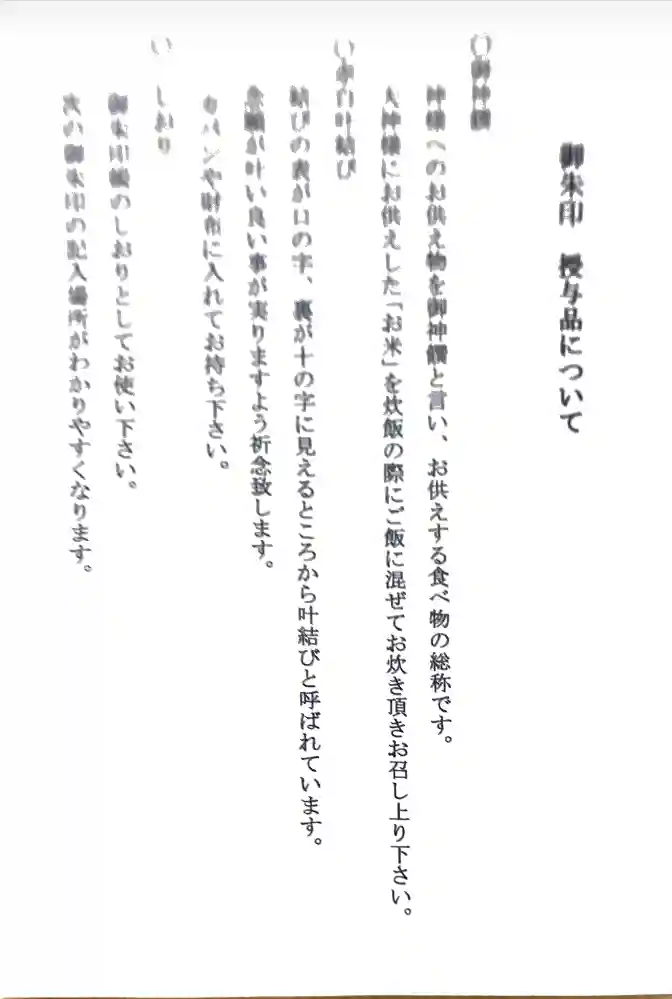 御朱印 授与品について
〇御神饌
神様へのお供え物を御神饌と言い、お供えする食べ物の総称です。
大神様にお供えした「お米」を炊飯の際にご飯に混ぜてお炊き頂きお召し上り下さい。
叶結び
結びの表が口の字、裏が十の字に見えるところから叶結びと呼ばれています。
念願が叶い良い事が実りますよう祈念致します。
カバンや財布に入れてお持ち下さい。
しおり
御朱印帳のしおりとしてお使い下さい。
次の御朱印の記入場所がわかりやすくなります。